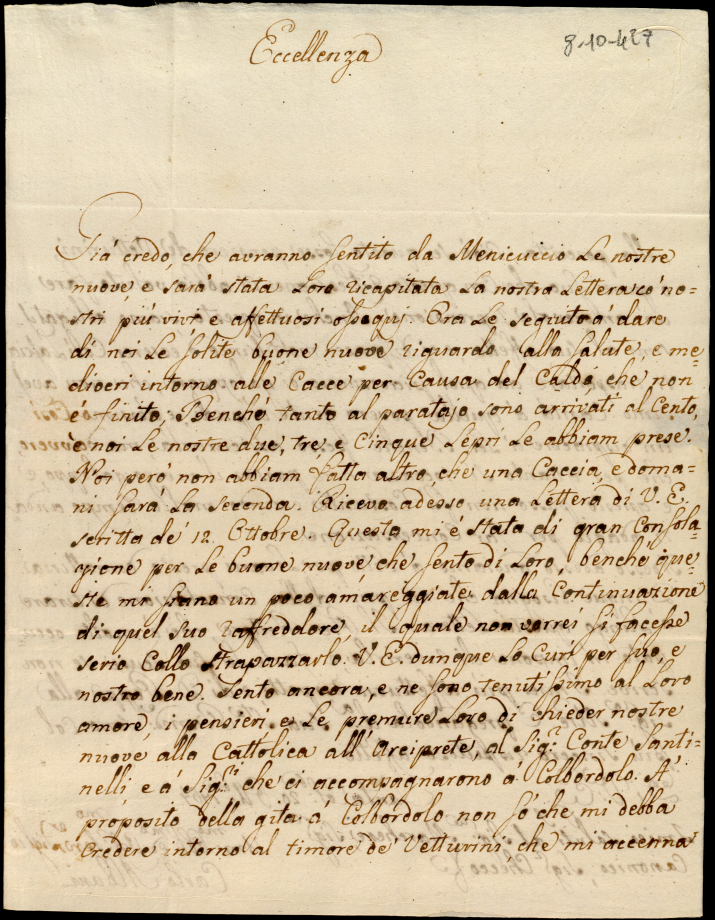 Eccellenza
8-10-427
Già credo, che avranno sentito da Menicuccio Le nostre
nuove, e sarà stata Loro ricapitata La nostra Lettera co' no=
stri più vivi, e affettuosi ossequj. Ora Le seguito a' dare
di noi Le solite buone nuove riguardo alla salute, e me=
diocri intorno alle Cacce per causa del Caldo, che non
è finito; Benchè tanto al paratajo sono arrivati al Cento,
e noi Le nostre due, tre, e Cinque Lepri Le abbiam prese.
Noi però non abbiam fatta altro, che una Caccia, e doma=
ni sarà La seconda. Ricevo adesso una Lettera di V. E.
scritta de' 12. Ottobre. Questa mi è stata di gran Consola=
zione per Le buone nuove che sento di Loro, benchè que=
ste mi siano un poco amareggiate dalla Continuazione
di quel suo raffreddore il quale non vorrei si facesse
serio Collo strapazzarlo. V. E. dunque Lo Curi per suo, e
nostro bene. Sento ancora, e ne sono tenutissimo al Loro
amore, i pensieri, e Le premure Loro di chieder nostre
nuove alla Cattolica all' Arciprete, al Sig.r Conte Santi=
nelli e a' Sig.ri che ci accompagnarono a' Colbordolo. A'
proposito della gita a' Colbordolo non só che mi debba
credere intorno al timore de' Vetturini, che mi accenna